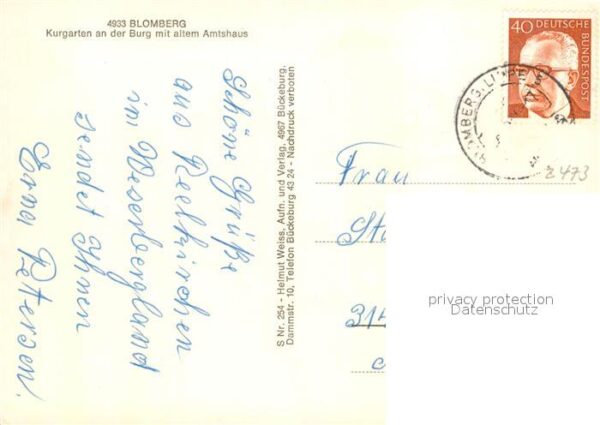 4933 BLOMBERG
Kurgarten an der Burg mit altem Amtshaus
Schöne Grüße
aus Reelkirchen
im Weserbergland
sendet Ihnen
Erna Petersen.
S Nr. 254 - Helmut Weiss, Aufn. und Verlag, 4967 Bückeburg,
Dammstr. 10, Telefon Bückeburg 43 24 - Nachdruck verboten
40
DEUTSCHE
BUNDESPOST
BLOMBERG, LIPPE
Frau
St
31
privacy protection
Datenschutz